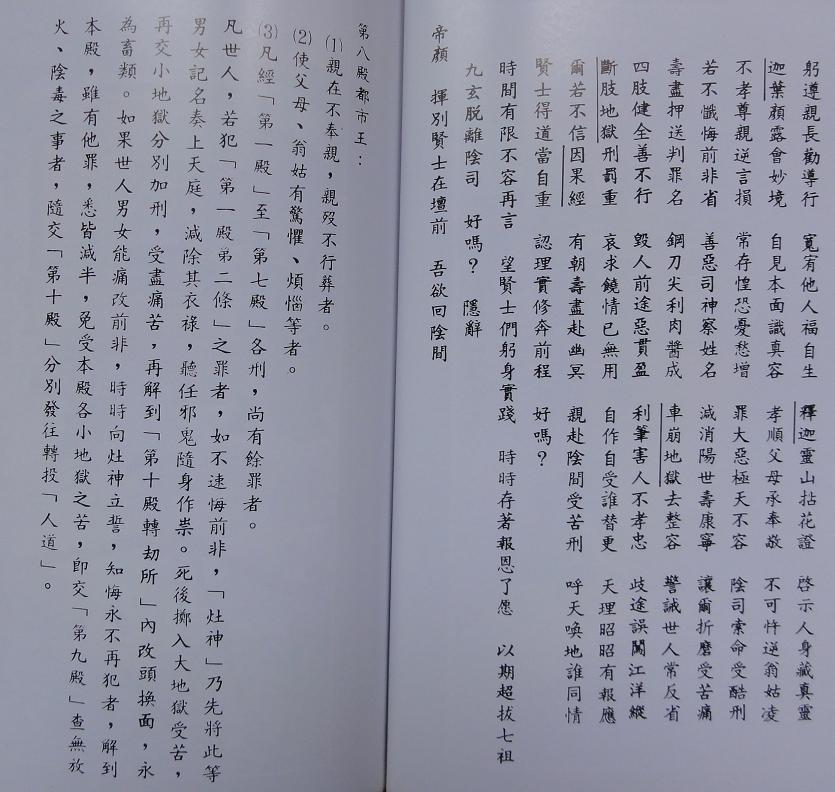 躬遵親長勸導行　寬宥他人福自生　釋迦靈山拈花證　啓示人身藏真靈
迦葉顏露會妙境　自見本面識真容　孝順父母承奉敬　不可忤逆翁姑凌
不孝尊親逆言損　常存惶恐憂愁增　罪大惡極天不容　陰司索命受酷刑
若不懺悔前非省　善惡司神察姓名　減消陽世壽康寧　讓爾折磨受苦痛
壽盡押送判罪名　鋼刀尖利肉醬成　車崩地獄去整容　警誡世人常反省
四肢健全善不行　毀人前途惡貫盈　利筆害人不孝忠　歧途誤闖江洋縱
斷肢地獄刑罰重　哀求饒情已無用　自作自受誰替更　天理昭昭有報應
爾若不信因果經　有朝壽盡赴幽冥　親赴陰間受苦刑　呼天喚地誰同情
賢士得道當自重　認理實修奔前程　好嗎？
時間有限不容再言　望賢士們躬身實踐　時時存著報恩了愿　以期超拔七祖
九玄脱離陰司　好嗎？　隱辭
帝顏　揮別賢士在壇前　吾欲回陰間
第八殿都市王：
⑴親在不奉親，親歿不行葬者。
⑵使父母、翁姑有驚懼、煩惱等者。
⑶凡經「第一殿」至「第七殿」各刑，尚有餘罪者。
凡世人，若犯「第一殿第二條」之罪者，如不速悔前非，「灶神」乃先將此等
男女記名奏上天庭，減除其衣祿，聽任邪鬼隨身作祟。死後擲入大地獄受苦，
再交小地獄分別加刑，受盡痛苦，再解到「第十殿轉劫所」內改頭換面，永
為畜類。如果世人男女能痛改前非，時時向灶神立誓，知悔永不再犯者，解到
本殿，雖有他罪，悉皆減半，免受本殿各小地獄之苦，即交「第九殿」查無放
火、陰毒之事者，隨交「第十殿」分別發往轉投「人道」。